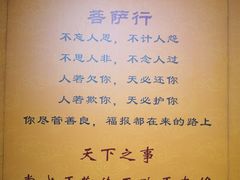 菩萨行
不忘人恩，不计人怨
不思人非，不念人过
人若欠你，天必还你
人若欺你，天必护你
你尽管善良，福报都在来的路上
天下之事